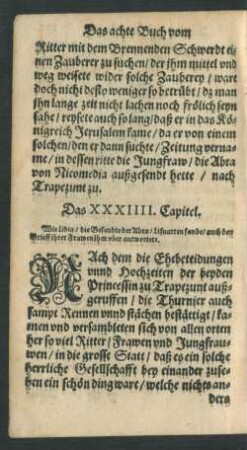 Das achte Buch vom
Ritter mit dem Brennenden Schwerdt ei
nen Zauberer zu suchen/ der jhm mittel vnd
weg weisete wider solche Zauberey/ ware
doch nicht desto weniger so betrübt/ dz man
jhn lange zeit nicht lachen noch frölich seyn
sahe/ reysete auch so lang/ daß er in das Kö
nigreich Jerusalem kame/ da er von einem
solchen/ den er dann suchte/ Zeitung verna-
me/ in dessen ritte die Jungfraw/ die Abra
von Nicomedia außgesendt hette/ nach
Trapezunt zu.
Das XXXIIII. Capitel.
Wie Lidia/ die Gesandte der Abra/ Lisuarten fande/ auch den
Brieff jhrer Frawen jhm vber antwortete.
NAch dem die Ehebeteidungen
vnnd Hochzeiten der beyden
Princessin zu Trapezunt auß-
geruffen/ die Thurnier auch
sampt Rennen vnnd stächen bestättigt/ ka-
men vnd versambleten sich von allen orten
her so viel Ritter/ Frawen vnd Jungfrau-
wen/ in die grosse Statt/ daß es ein solche
herrliche Gesellschafft bey einander zuse-
hen ein schön ding ware/ welche nichts an-
ders